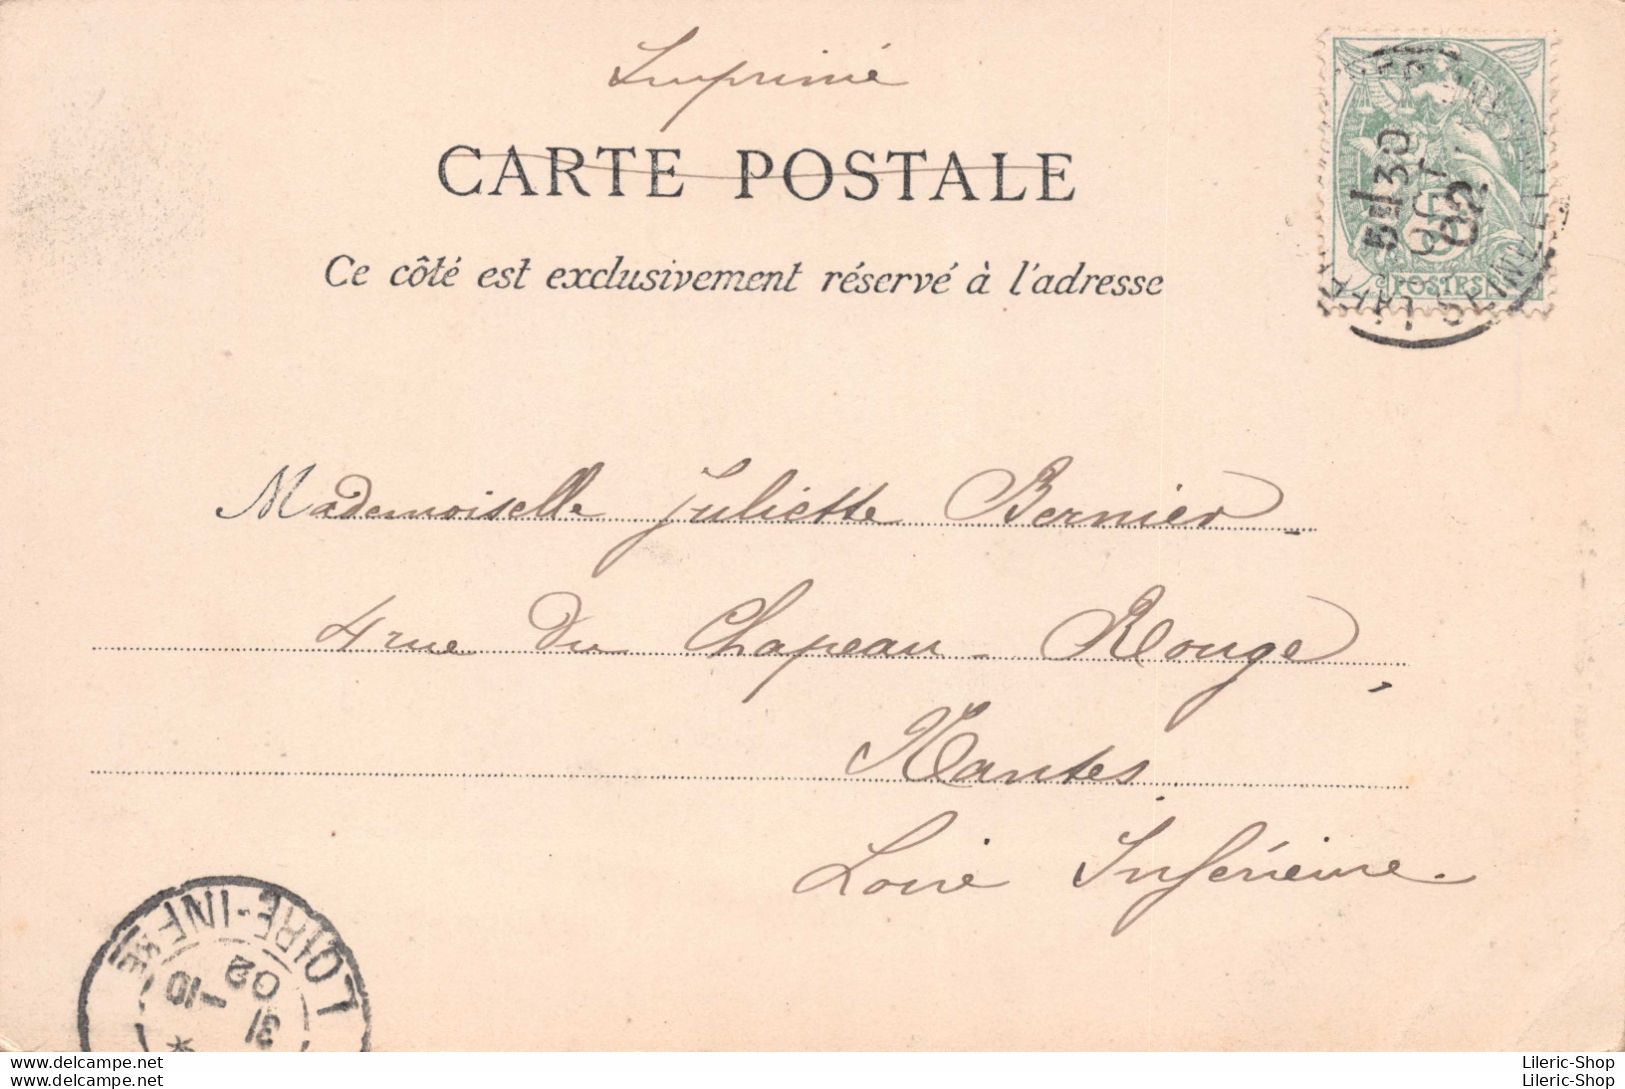 Imprimé
CARTE POSTALE
Ce côté est exclusivement réservé à l'adresse
5E 30
OCT
02
POSTES
Mademoiselle Juliette Bernier
4 rue du Chapeau-Rouge,
Nantes
Loire Inférieure.
LOIRE-INFRE
10
31
02
Lileric-Shop
www.delcampe.net
Lileric-Shop
www.delcampe.net